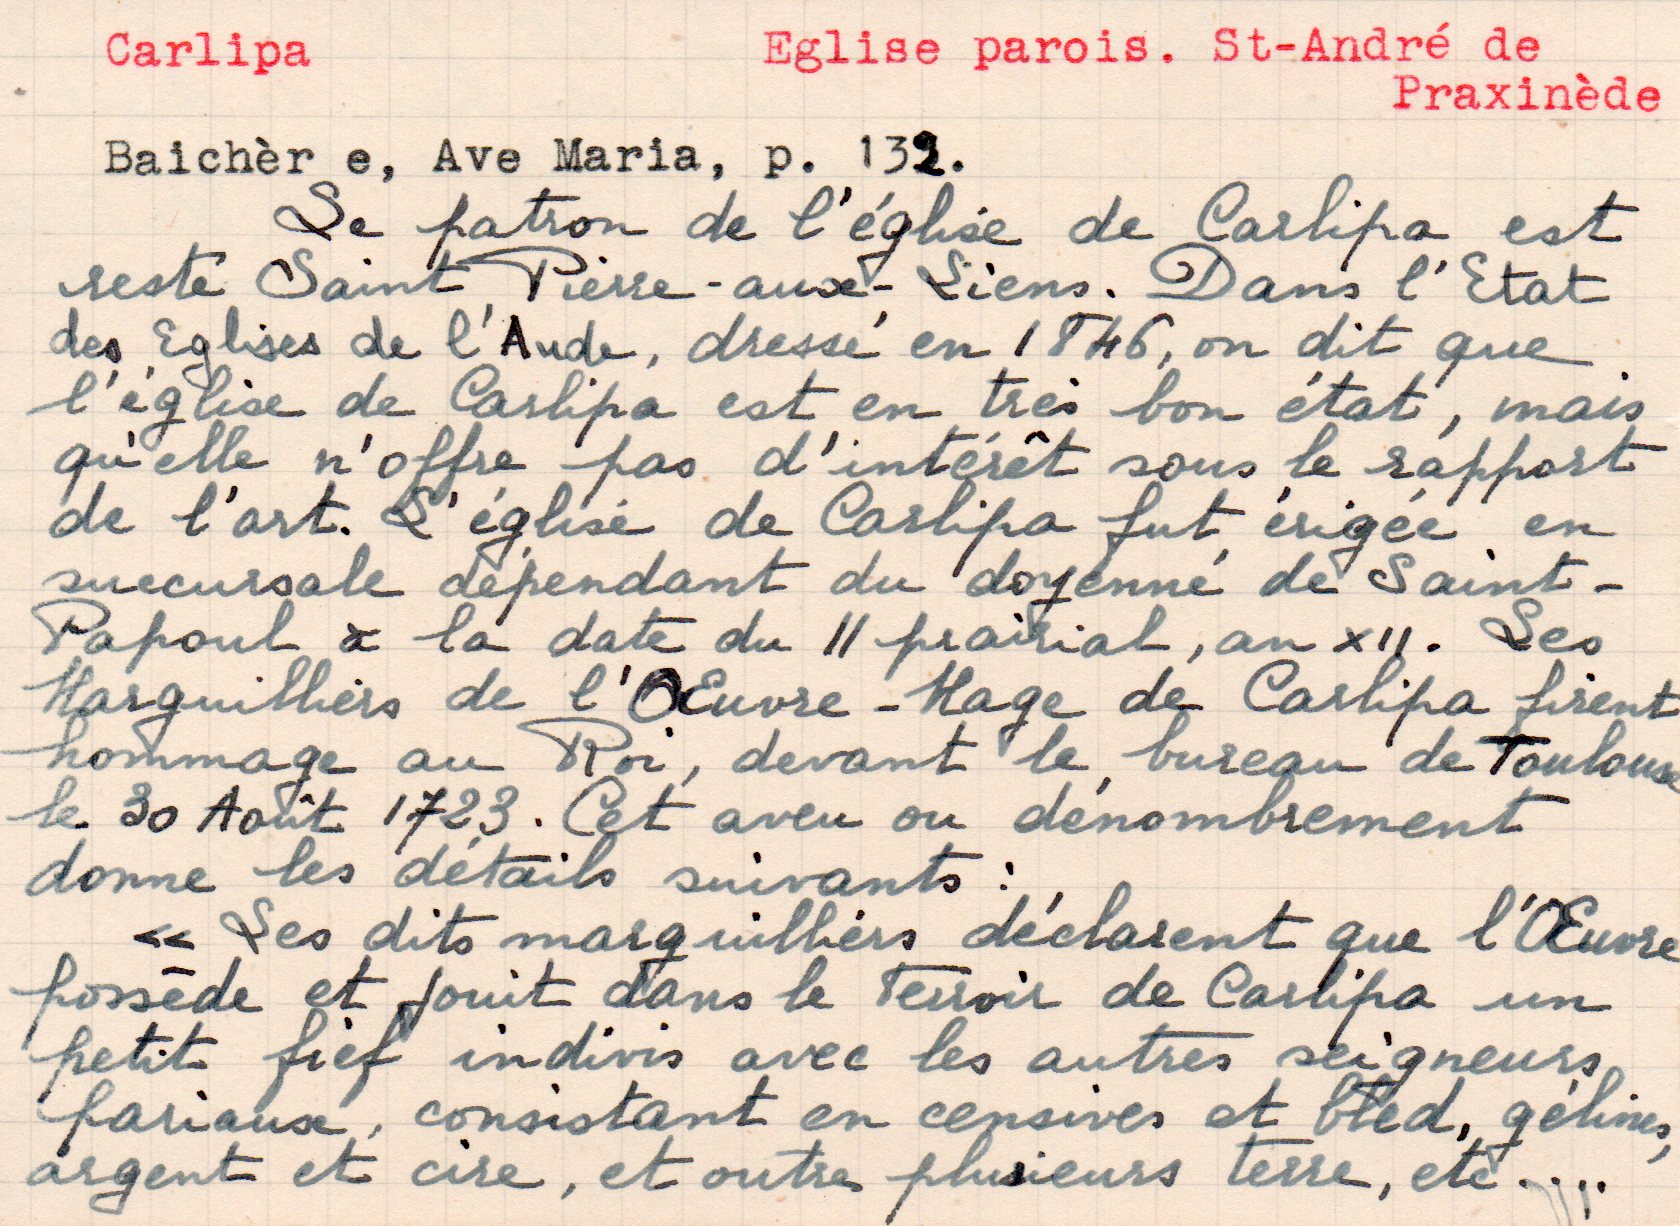 Carlipa Eglise parois. St-André de
Praxinède
Baichèr e, Ave Maria, p. 132.
Le patron de l'église de Carlipa est
resté Saint Pierre-aux-Liens. Dans l'Etat
des Eglises de l'Aude, dressé en 1846, on dit que
l'église de Carlipa est en très bon état, mais
qu'elle n'offre pas d'intérêt sous le rapport
de l'art. L'église de Carlipa fut érigée en
succursale dépendant du doyenné de Saint-
Papoul à la date du 11 prairial, an XII. Les
Marguilliers de l'Œuvre-Mage de Carlipa firent
hommage au Roi, devant le bureau de Toulouse
le 30 Août 1723. Cet aveu ou dénombrement
donne les détails suivants :
« Les dits marguilliers déclarent que l'Œuvre
possède et jouit dans le Terroir de Carlipa un
petit fief indivis avec les autres seigneurs
pariaux, consistant en censives et bled, gélines,
argent et cire, et outre plusieurs terre, etc....